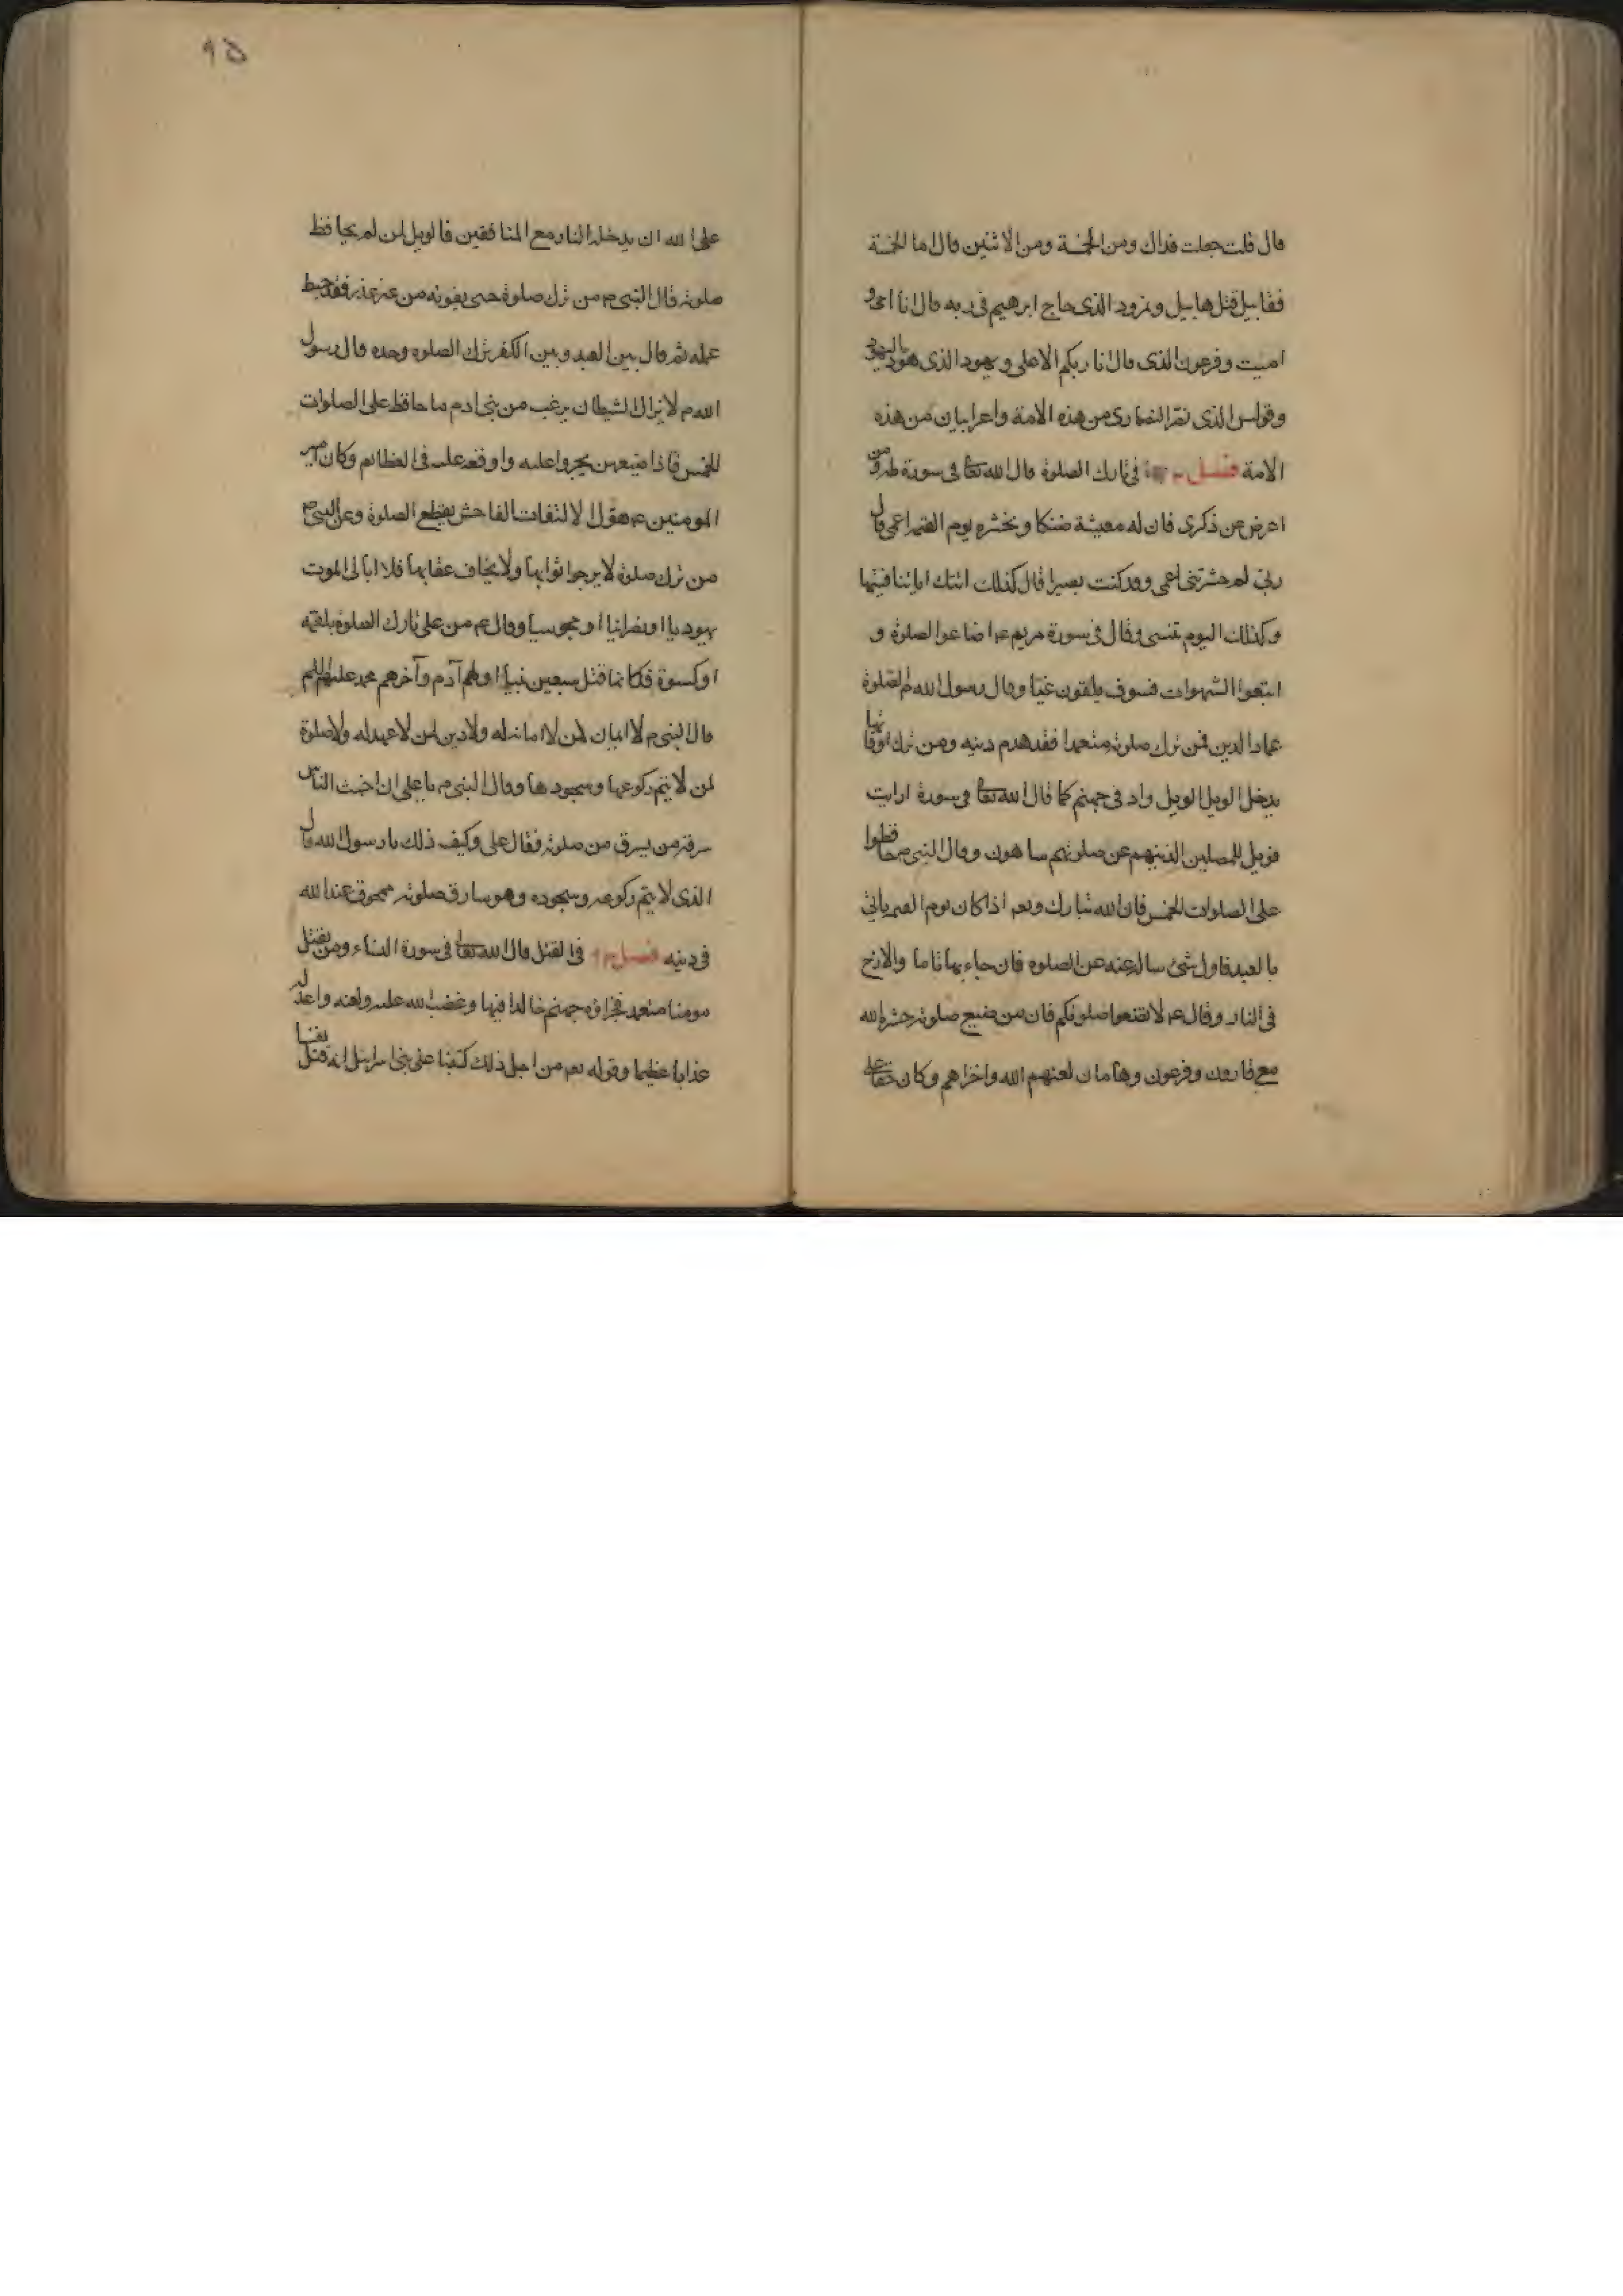 قال قلت جعلت فداك ومن الخمسة ومن الاثنين قال اما الخمسة
فقابيل قتل هابيل ونمرود الذى حاج ابرهيم فى ربه قال انا احى و
اميت وفرعون الذى قال انا ربكم الاعلى و يهود الذى هود اليهود
وقولس الذى نصر النصارى ومن هذه الامة واعرابيان من هذه
الامة فصل فى تارك الصلوة قال الله تعا فى سورة طه ومن
اعرض عن ذكرى فان له معيشة ضنكا ونحشره يوم القيمه اعمى قال
رب لم حشرتنى اعمى وقد كنت بصيرا قال كذلك اتتك اياتنا فنسيتها
وكذلك اليوم تنسى وقال فى سورة مريم ع اضاعوا الصلوة و
اتبعوا الشهوات فسوف يلقون غيا وقال رسول الله م الصلوة
عماد الدين فمن ترك صلوته متعمدا فقد هدم دينه ومن ترك اوقاتها
يدخل الويل الويل واد فى جهنم كما قال الله تعا فى سورة ارايت
فويل للمصلين الذينهم عن صلوتهم ساهون وقال النبى ص حافظوا
على الصلوات الخمس فان الله تبارك وتعم اذا كان يوم القيمه ياتى
بالعبد فاول شئ ساله عنه عن الصلوه فان جاء بها تاما والا زخ
فى النار وقال عم لا تضيعوا صلوتكم فان من ضيع صلوته حشره الله
مع قارون وفرعون وهامان لعنهم الله واخزاهم وكان حقا على
٩٥
على الله ان يدخله النار مع المنافقين فالويل لمن لم يحافظ
صلوته قال النبى م من ترك صلوة حتى يفوته من غير عذر فقد حبط
عمله ثم قال بين العبد وبين الكفر ترك الصلوه وحده قال رسول
الله م لا يزال الشيطان يرغب من بنى ادم ما حافظ على الصلوات
الخمس فاذا ضيعهن يجروا عليه واوقعه عله فى العظائم وكان امير
المومنين عم يقول الالتفات الفاحش يقطع الصلوة وعن النبى م
من ترك صلوة لا يرجوا ثوابها ولا يخاف عقابها فلا ابالى الموت
يهوديا او نصرانيا او مجوسيا وقال عم من على تارك الصلوة بلقمة
او كسوة فكانما قتل سبعين نبيا اولهم آدم وآخرهم محمد عليهم السلم
قال النبى م لا ايمان لمن لا امانة له ولا دين لمن لا عهد له ولا صلوة
لمن لا يتم ركوعها وسجودها وقال النبى م يا على ان اخبث الناس
سرقة من يسرق من صلوته فقال على وكيف ذلك يا رسول الله قال
الذى لا يتم ركوعه وسجوده وهو سارق صلوته ممحوق عند الله
فى دينه فصل فى القتل قال الله تعا فى سورة النساء ومن يقتل
مومنا متعمد فجزاؤه جهنم خالدا فيها وغضب الله عليه ولعنه واعد له
عذابا عظيما وقوله تعم من اجل ذلك كتبنا على بنى اسرايل انه قتل نفسا